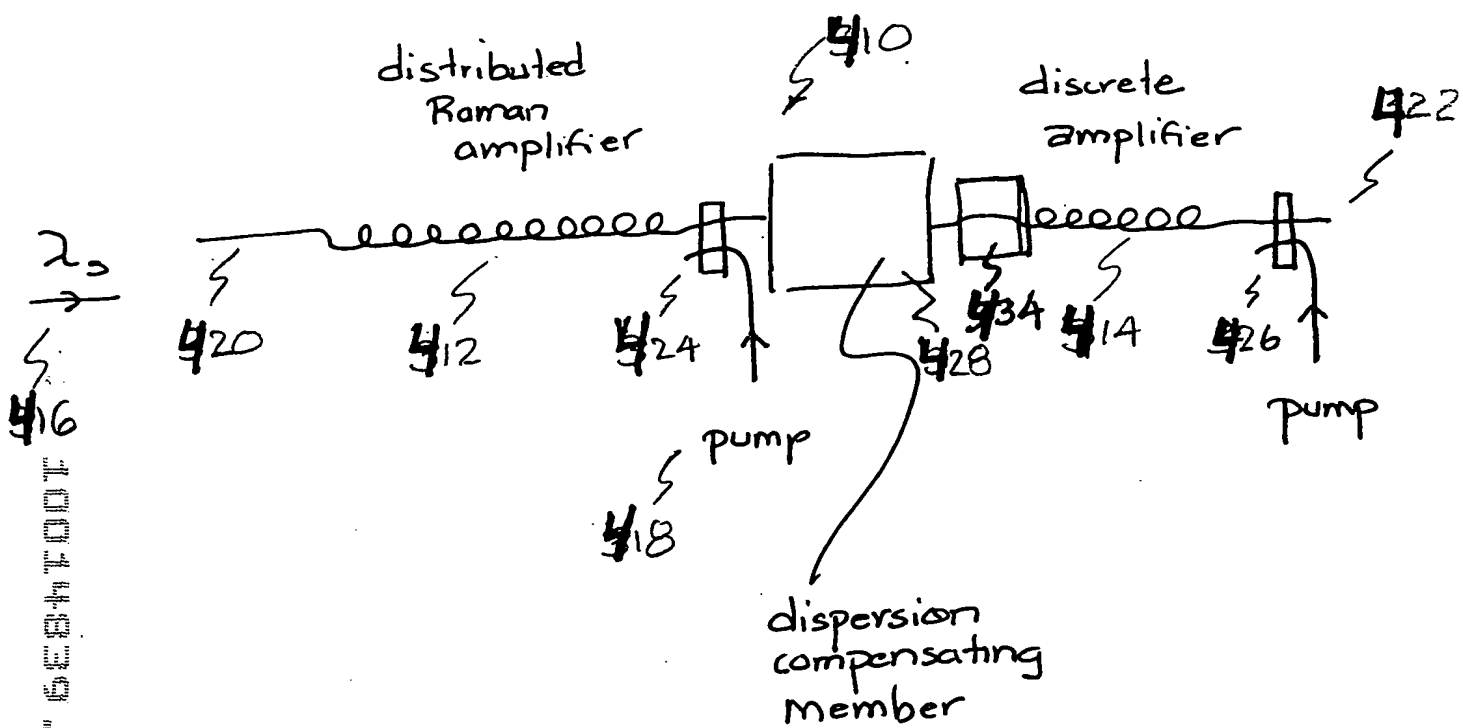 distributed
Raman
amplifier
410
discrete
amplifier
422
λs
416
420
412
424
428
434
414
426
pump
pump
418
dispersion
compensating
member
10014839.